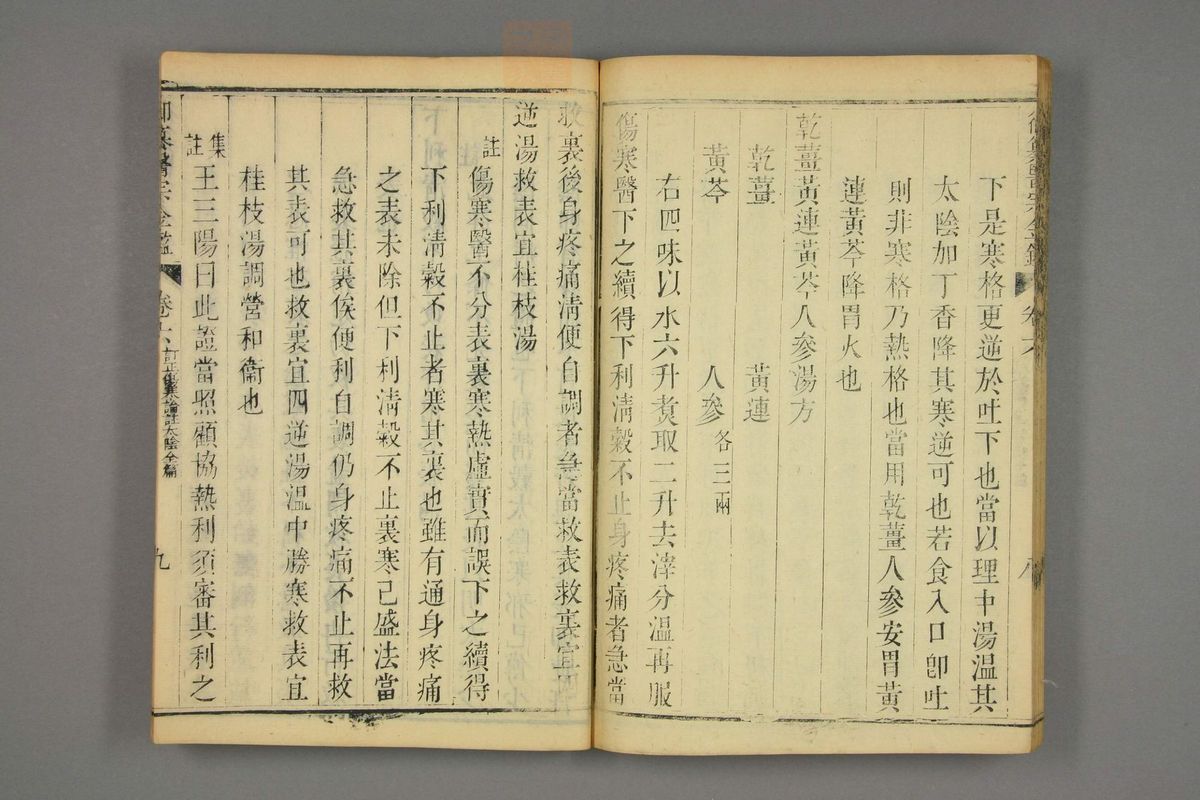 下是寒格更逆於吐下也當以理中湯溫其
太陰加丁香降其寒逆可也若食入口卽吐
則非寒格乃熱格也當用乾薑人參安胃黃
連黃芩降胃火也
乾薑黃連黃芩人參湯方
乾薑 黃連
黃芩 人參各三兩
右四味以水六升煑取二升去滓分溫再服
傷寒醫下之續得下利清穀不止身疼痛者急當
救裏後身疼痛清便自調者急當救表救裏宜四
逆湯救表宜桂枝湯
註 傷寒醫不分表裏寒熱虛實而誤下之續得
下利清穀不止者寒其裏也雖有通身疼痛
之表未除但下利清穀不止裏寒已盛法當
急救其裏俟便利自調仍身疼痛不止再救
其表可也救裏宜四逆湯溫中勝寒救表宜
桂枝湯調營和衞也
集註 王三陽曰此證當照顧協熱利須審其利之
御纂醫宗金鑑 卷六 訂正傷寒論註太陰全篇 九